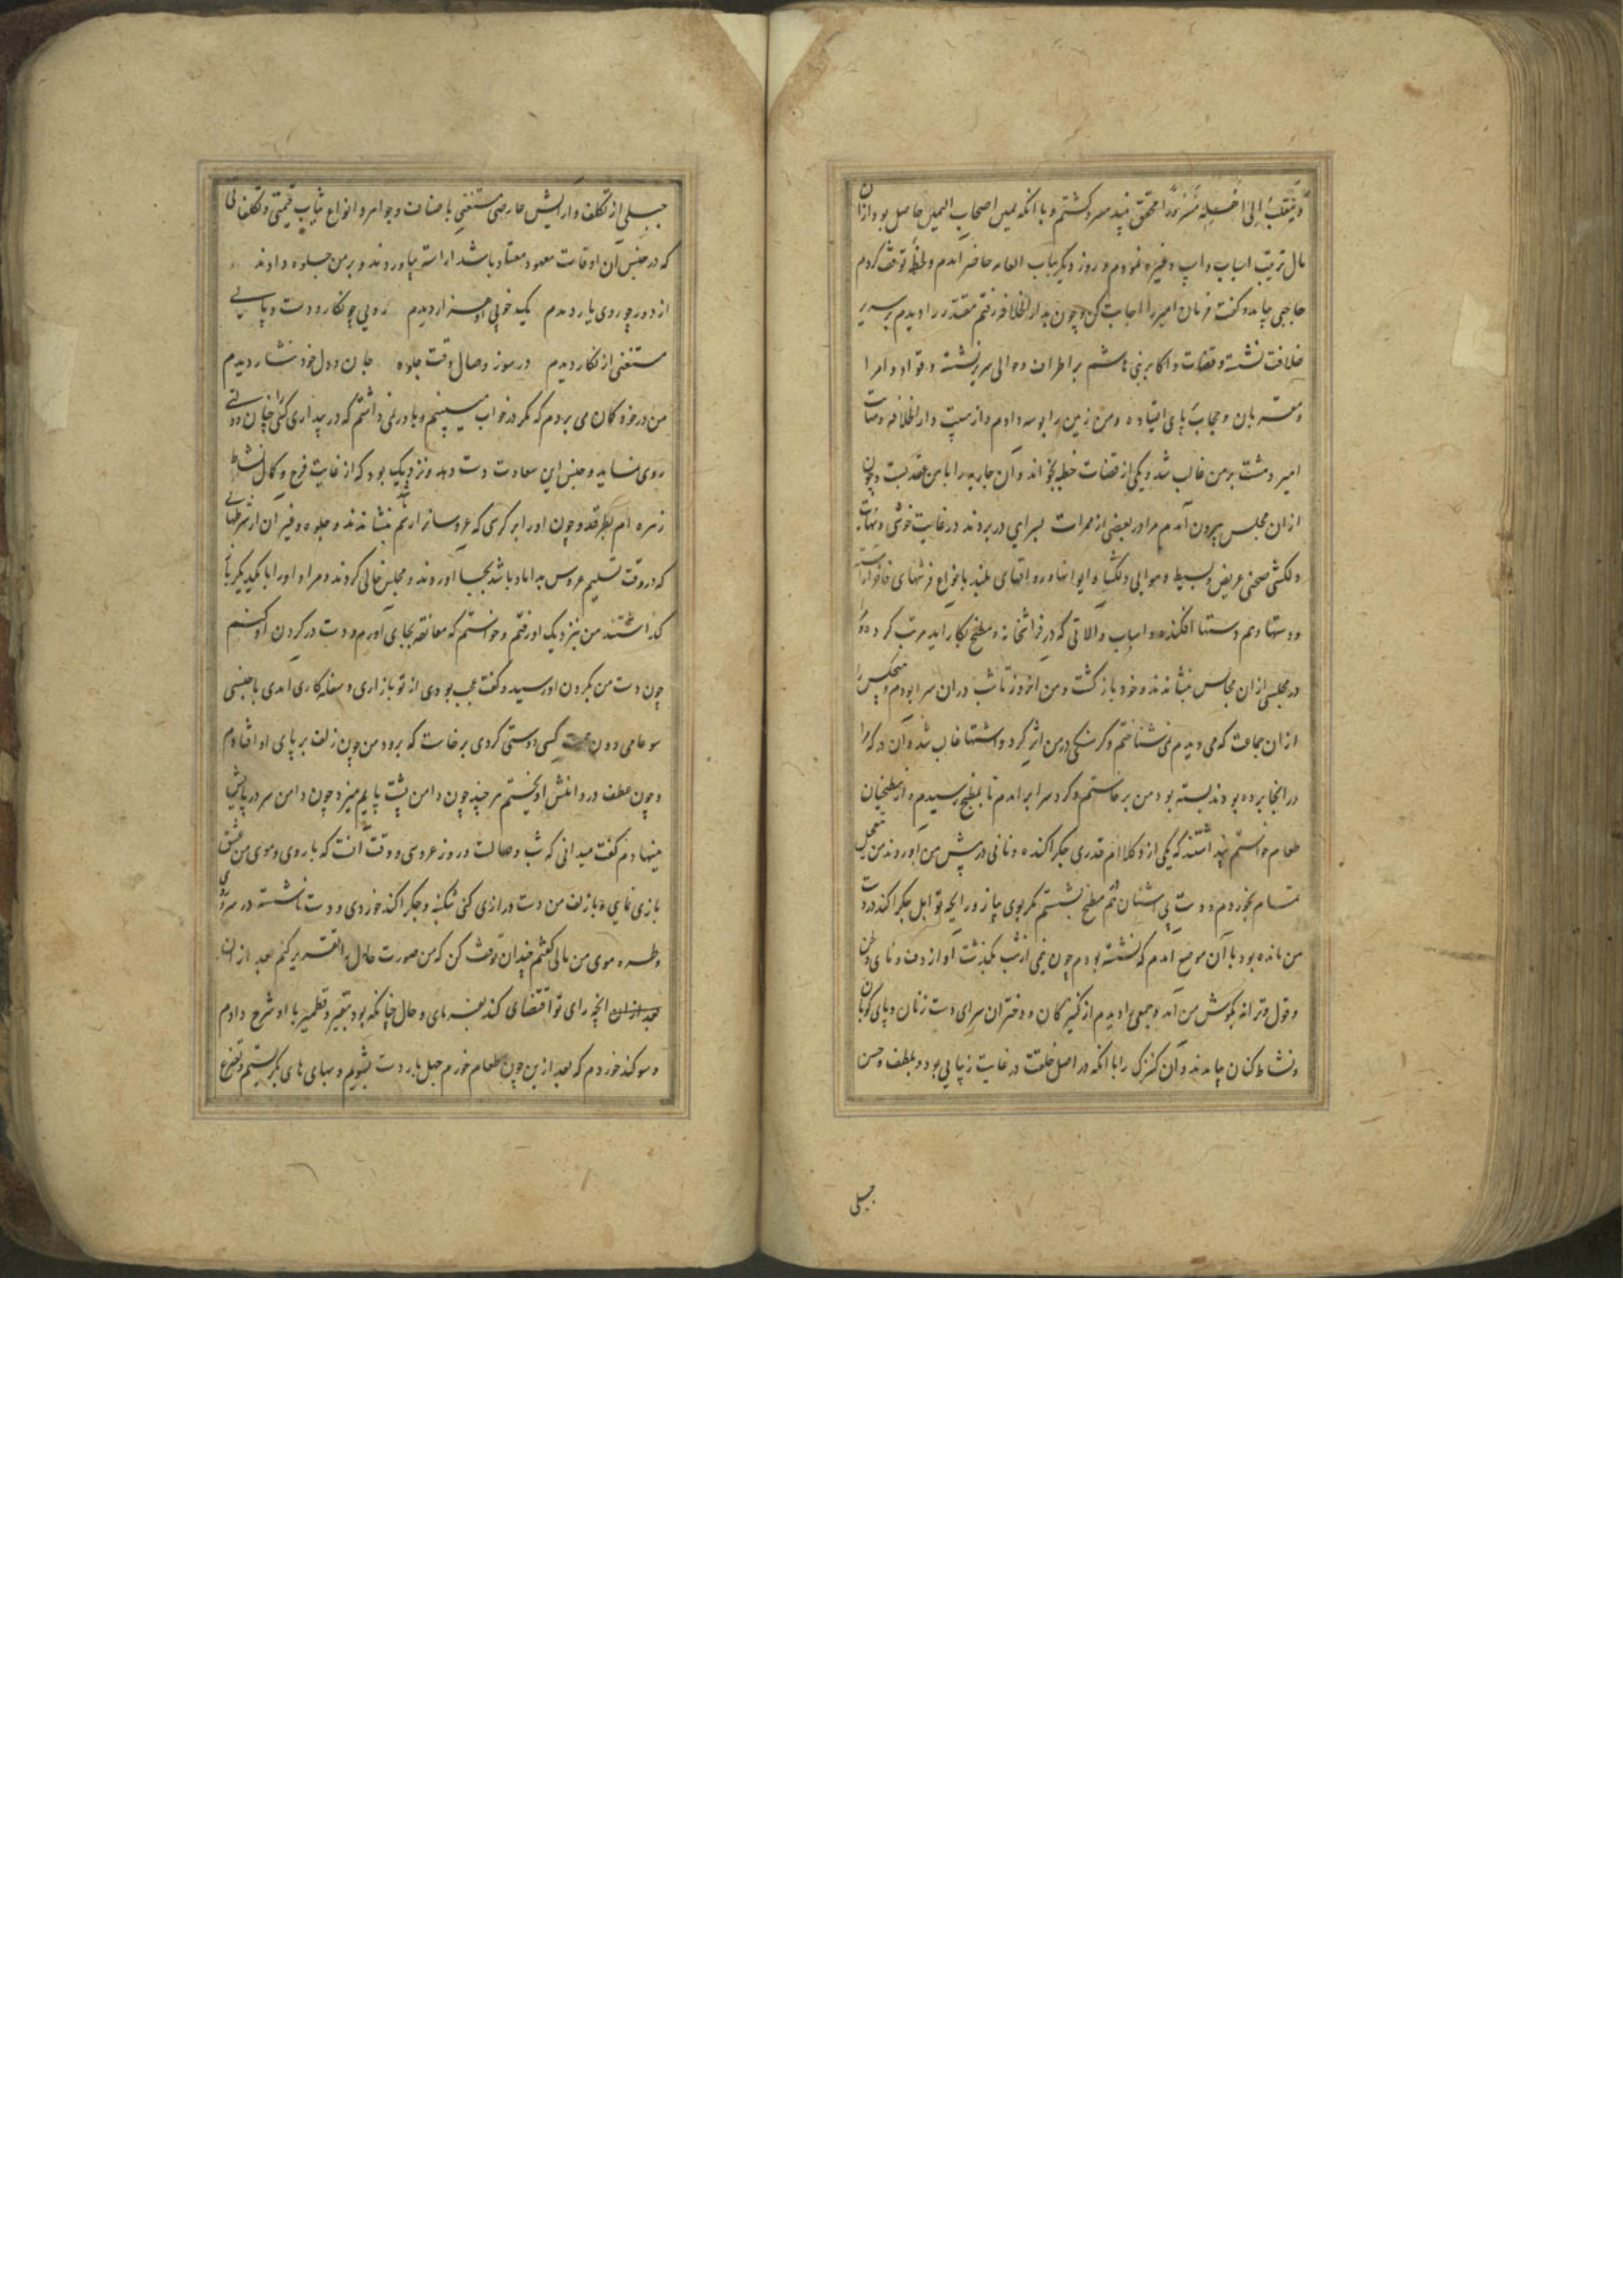 وینقلب الی اهله مسرورا محقق نپد مسرور کشتم و با انکه یمین اصحاب الیمین حاصل بود ازان
مال ترتیب اسباب واسپ و غیره نمودم و روز دیکر بباب العامه حاضر آمدم و لحظهٔ توقف کردم
حاجبی بیامد و کفت فرمان امیر را اجابت کن و چون بدار الخلافه رفتم مقتدر را دیدم بر سریر
خلافت نشسته و قضات و اکابر بنی هاشم بر اطراف و حوالی سریر نشسته و قواد و امرا
و مقربان و حجاب بپای ایستاده و من زمین را بوسه دادم و از هیبت دار الخلافه و مهابت
امیر دهشت بر من غالب شد و یکی از قضات خطبه بخواند و آن جاریه را با من عقد بست و چون
ازان مجلس بیرون آمدم مرا در بعضی از ممرات بسرایی در بردند در غایت خوشی و نهایت
دلکشی صحنی عریض و بسیط و هوایی دلکشا و ایوانها و رواقهای بلند بانواع فرشهای فاخر آراسته
و دستها و هم دستها افکنده و اسباب و الاتی که در فراشخانه و مطبخ بکار اید مرتب کرده و مرا
در مجلسی ازان مجالس بنشاندند و خود بازکشت و من انروز تا شب دران سرا بودم و هیچکس را
ازان جماعت که می دیدم نمی شناختم و کرسنکی در من اثر کرد و اشتها غالب شد و آن در که مرا
در انجا برده بودند بسته بود من برخاستم و کرد سرا بر امدم تا بمطبخ رسیدم و از مطبخیان
طعام خواستم نپد اشتند که یکی از وکلا ام قدری جکراکنده و نانی در پیش من اوردند من بتعجیل
تمام بخوردم و دست بی اشنان هم مطبخ بشستم مکر بوی پیاز و رایحه توابل جکراکند در دست
من مانده بود با آن موضع امدم که نشسته بودم چون نیمی از شب بکذشت آواز دف و نای و لحن
و قول و ترانه بکوش من آمد و جمعی را دیدم از کنیزکان و دختران سرای دست زنان و پای کوبان
و نشاط کنان بیامدند و آن کنزک را با انکه در اصل خلقت در غایت زیبایی بود و بلطف و حسن
جبلی
جبلی از تکلف و ارایش عارضی مستغنی باصناف و جواهر و انواع ثیاب قیمتی و تکلفاتی
که در جنس آن اوقات معهود و معتاد باشد اراسته بیاوردند و بر من جلوه دادند
از دور چو روی یار دیدم یک خوبی او هزار دیدم رویی چو نکار و دست و پایی
مستغنی از نکار دیدم در سوز وصال وقت جلوه جان و دل خود نثار دیدم
من در خود کمان می بردم که مکر در خواب میبینم و باور نمی داشتم که در بیداری کسی را چنان دولتی
روی نماید و جنس این سعادت دست دهد و نزدیک بود که از غایت فرح و کمال نشاط
زهره ام بطرقد و چون او را بر کرسی که عروسانرا رسم باشد بنشاندند و جلوه و غیر ان از شرطهایی
که در وقت تسلیم عروس به داماد باشد بجا اوردند و مجلس خالی کردند و مرا و او را با یکدیکر باز
کذاشتند من بنزدیک او رفتم و خواستم که معانقه بجای اورم و دست در کردن او کنم
چون دست من بکردن او رسید و کفت عجب بودی از تو بازاری و سفله کاری امدی با جنسی
سوء عامی و دون همت کسی دوستی کردی برخاست که برود من چون زلف بر پای او افتادم
و چون عطف در دامنش اویختم هر چند چون دامن پشت پایم میزد چون دامن سر در پایش
مینهادم کفت میدانی که شب وصالست و روز عروسی و وقت آنست که با روی و موی من عشق
بازی نمایی و با زلف من دست درازی کنی شکنبه و جکراکند خوردی و دست ناشسته در سر و روی
و طره موی من مالی کفتم چندان توقف کن که من صورت حال را تقریر کنم بعد ازان
بعد ازان انچه رای تو اقتضای کند بفرمای و حال چنانکه بود بنقیر و قطمیر با او شرح دادم
و سوکند خوردم که بعد ازین چون طعام خورم چهل بار دست بشویم و بهای های بکریستم و تضرع